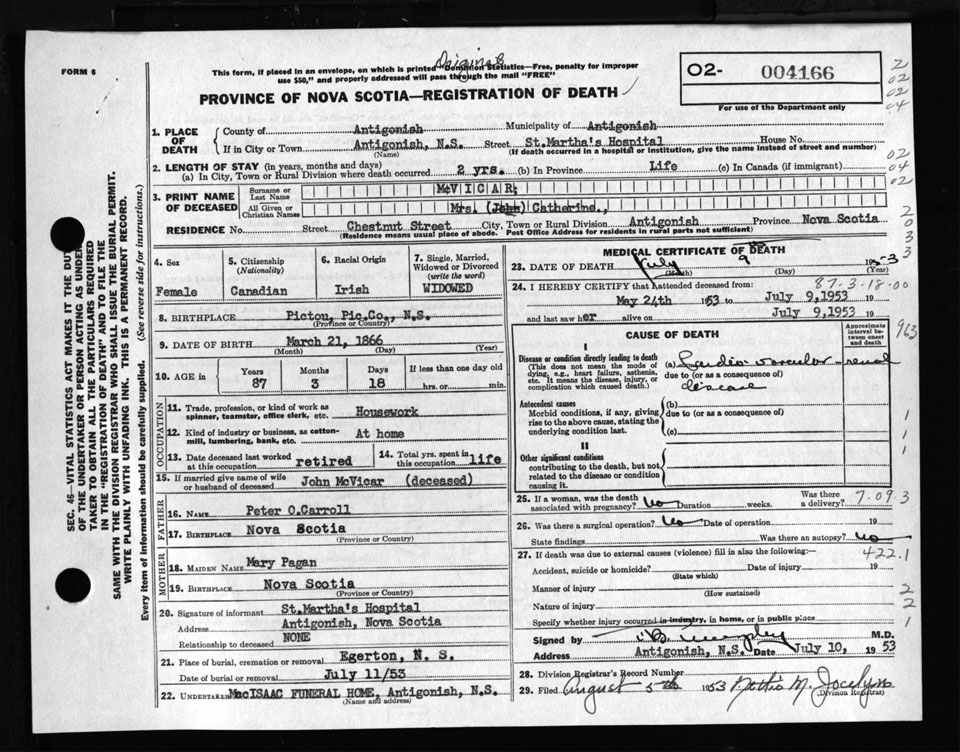 FORM 6
Original
This form, if placed in an envelope, on which is printed "Dominion Statistics—Free, penalty for improper
use $50," and properly addressed will pass through the mail "FREE"
PROVINCE OF NOVA SCOTIA—REGISTRATION OF DEATH
O2- 004166
For use of the Department only
2
02
02
04
1. PLACE OF DEATH
County of Antigonish Municipality of Antigonish
If in City or Town Antigonish, N.S. Street St.Martha's Hospital House No.
(Name) (If death occurred in a hospital or institution, give the name instead of street and number)
02
04
02
2. LENGTH OF STAY (in years, months and days)
(a) In City, Town or Rural Division where death occurred 2 yrs. (b) In Province Life (c) In Canada (if immigrant)
3. PRINT NAME OF DECEASED
Surname or Last Name McVICAR,
All Given or Christian Names Mrs. (John) Catherine.,
RESIDENCE No. Street Chestnut Street City, Town or Rural Division Antigonish Province Nova Scotia
(Residence means usual place of abode. Post Office Address for residents in rural parts not sufficient)
2
0
3
3
3
SEC. 46—VITAL STATISTICS ACT MAKES IT THE DUTY
OF THE UNDERTAKER OR PERSON ACTING AS UNDER-
TAKER TO OBTAIN ALL THE PARTICULARS REQUIRED
IN THE "REGISTRATION OF DEATH" AND TO FILE THE
SAME WITH THE DIVISION REGISTRAR WHO SHALL ISSUE THE BURIAL PERMIT.
WRITE PLAINLY WITH UNFADING INK. THIS IS A PERMANENT RECORD.
Every item of information should be carefully supplied. (See reverse side for instructions.)
4. Sex
Female
5. Citizenship
(Nationality)
Canadian
6. Racial Origin
Irish
7. Single, Married,
Widowed or Divorced
(write the word)
WIDOWED
8. BIRTHPLACE Pictou, Pic.Co., N.S.
(Province or Country)
9. DATE OF BIRTH March 21, 1866
(Month) (Day) (Year)
10. AGE in Years Months Days If less than one day old
87 3 18 hrs. or min.
OCCUPATION
11. Trade, profession, or kind of work as
spinner, teamster, office clerk, etc. Housework
12. Kind of industry or business, as cotton-
mill, lumbering, bank, etc. At home
13. Date deceased last worked
at this occupation retired
14. Total yrs. spent
in this occupation life
15. If married give name of wife
or husband of deceased John McVicar (deceased)
FATHER
16. NAME Peter O.Carroll
17. BIRTHPLACE Nova Scotia
(Province or Country)
MOTHER
18. MAIDEN NAME Mary Pagan
19. BIRTHPLACE Nova Scotia
(Province or Country)
20. Signature of informant St.Martha's Hospital
Address Antigonish, Nova Scotia
Relationship to deceased NONE
21. Place of burial, cremation or removal Egerton, N. S.
Date of burial or removal July 11/53
22. UNDERTAKER MacISAAC FUNERAL HOME, Antigonish, N.S.
(Name and address)
MEDICAL CERTIFICATE OF DEATH
23. DATE OF DEATH July 9 1953
(Month) (Day) (Year)
87-3-18-00
24. I HEREBY CERTIFY that I attended deceased from:
May 24th 1953 to July 9,1953 19
and last saw her alive on July 9,1953 19
CAUSE OF DEATH
Approximate
interval between
onset and
death
963
I
Disease or condition directly leading to death
(This does not mean the mode of
dying, e.g., heart failure, asthenia,
etc. It means the disease, injury, or
complication which caused death.)
(a) Cardio-vascular-renal
due to (or as a consequence of)
disease
Antecedent causes
Morbid conditions, if any, giving
rise to the above cause, stating the
underlying condition last.
(b)
due to (or as a consequence of)
(c)
II
Other significant conditions
contributing to the death, but not
related to the disease or condition
causing it.
1
1
25. If a woman, was the death
associated with pregnancy? No Duration weeks. Was there
a delivery?
7-09-3
26. Was there a surgical operation? No Date of operation 19
State findings Was there an autopsy? No
27. If death was due to external causes (violence) fill in also the following:—
422.1
Accident, suicide or homicide? Date of injury 19
(State which)
Manner of injury
(How sustained)
Nature of injury
2
2
1
Specify whether injury occurred in industry, in home, or in public place
Signed by Murphy M.D.
Address Antigonish, N.S. Date July 10, 1953
28. Division Registrar's Record Number
29. Filed August 5th 1953 M. Jocelyn
(Division Registrar)